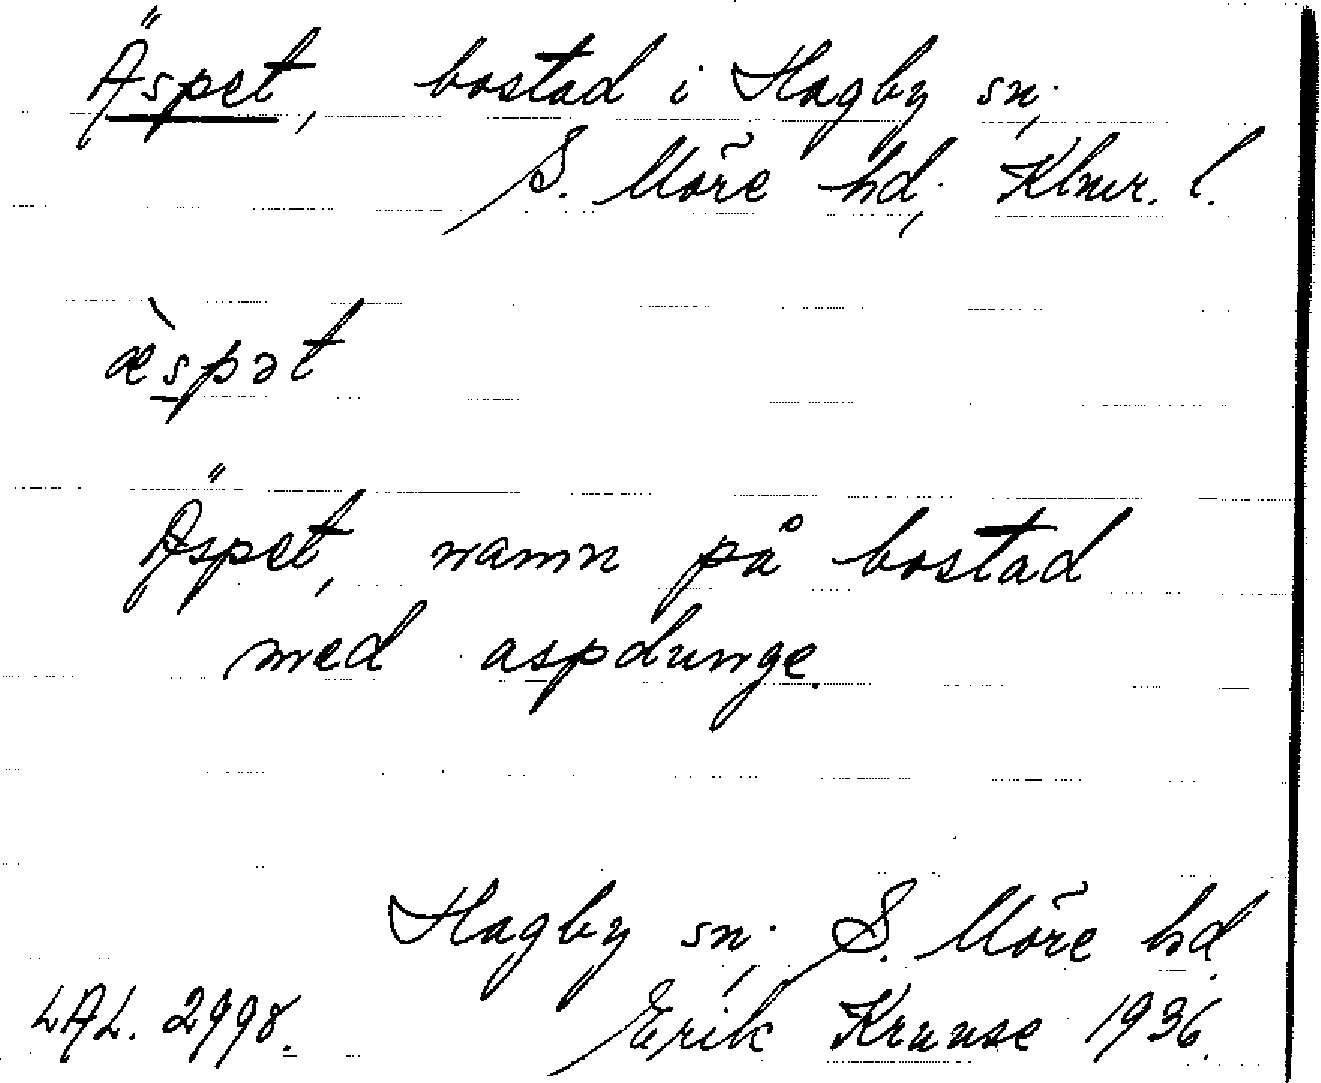 Äspet, bostad i Hagby sn.
S. Möre hd, Klmr. l.
æ̀spət
Äspet, namn på bostad
med aspdunge.
Hagby sn, S. Möre hd.
LAL. 2998. Erik Krause 1936.